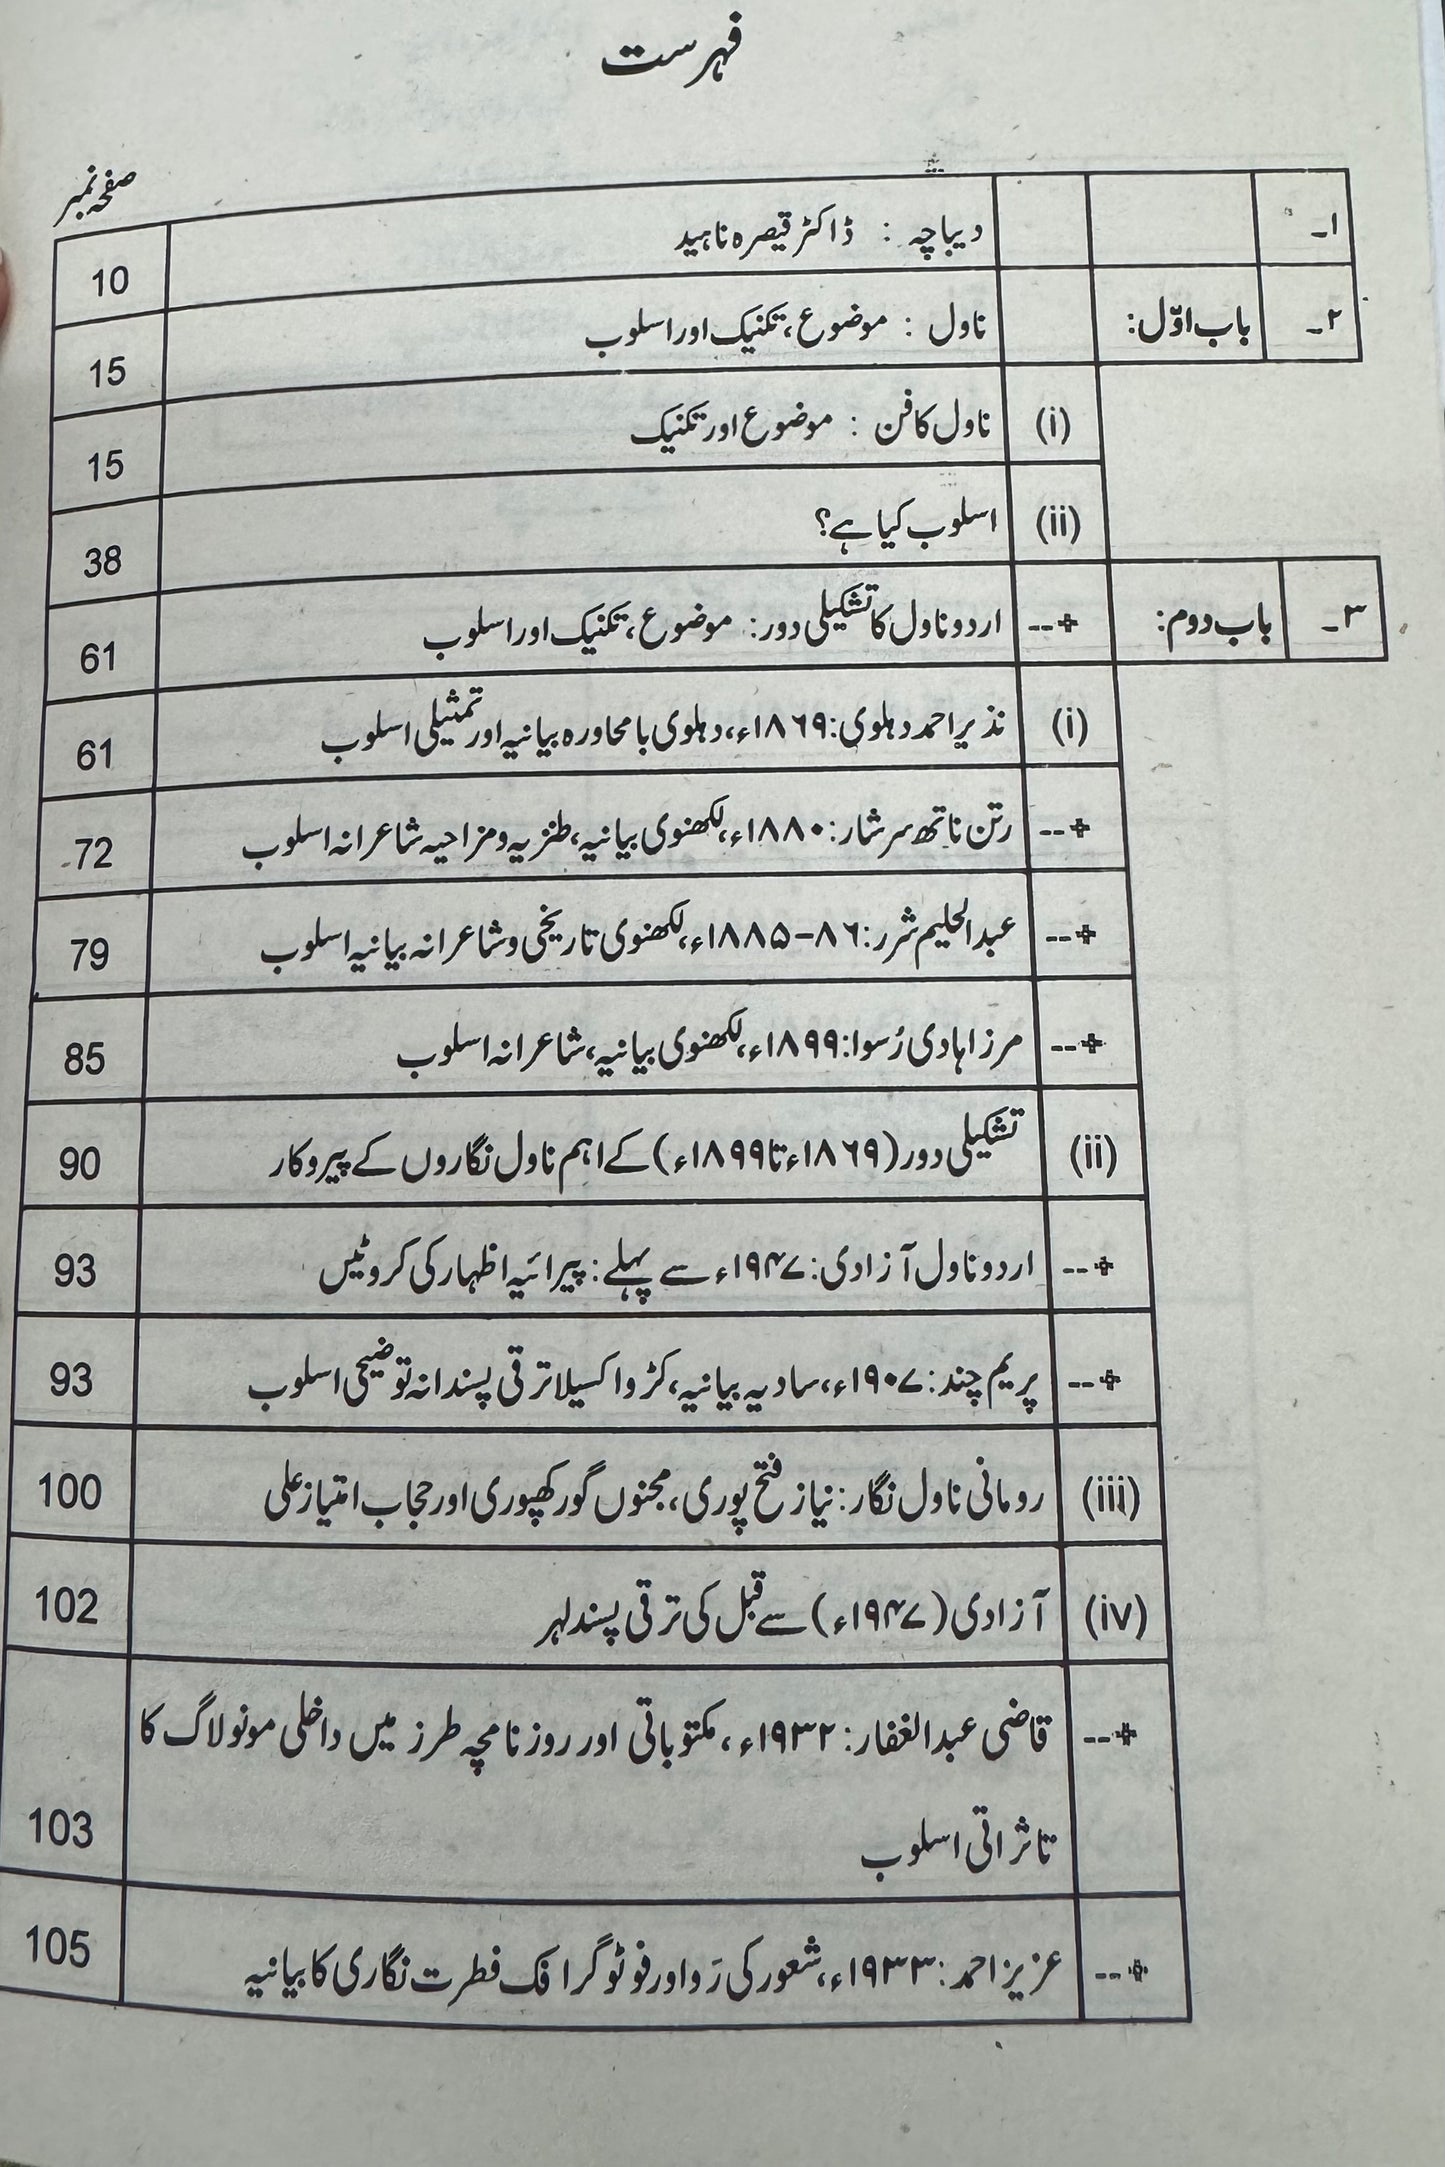 فہرست
صفحہ نمبر
۱۔ دیباچہ : ڈاکٹر قیصرہ ناہید 10
۲۔ باب اوّل: ناول : موضوع، تکنیک اور اسلوب 15
(i) ناول کا فن : موضوع اور تکنیک 15
(ii) اسلوب کیا ہے؟ 38
۳۔ باب دوم: +-- اردو ناول کا تشکیلی دور: موضوع، تکنیک اور اسلوب 61
(i) نذیر احمد دہلوی: ۱۸۶۹ء، دہلوی بامحاورہ بیانیہ اور تمثیلی اسلوب 61
+-- رتن ناتھ سرشار: ۱۸۸۰ء، لکھنوی بیانیہ، طنزیہ و مزاحیہ شاعرانہ اسلوب 72
+-- عبدالحلیم شرر: ۸۶-۱۸۸۵ء، لکھنوی تاریخی و شاعرانہ بیانیہ اسلوب 79
+-- مرزا ہادی رُسوا: ۱۸۹۹ء، لکھنوی بیانیہ، شاعرانہ اسلوب 85
(ii) تشکیلی دور (۱۸۶۹ء تا ۱۸۹۹ء) کے اہم ناول نگاروں کے پیروکار 90
+-- اردو ناول آزادی: ۱۹۴۷ء سے پہلے: پیرائیہ اظہار کی کروٹیں 93
+-- پریم چند: ۱۹۰۷ء، سادیہ بیانیہ، کڑوا کسیلا ترقی پسندانہ توضیحی اسلوب 93
(iii) رومانی ناول نگار: نیاز فتح پوری، مجنوں گورکھپوری اور حجاب امتیاز علی 100
(iv) آزادی (۱۹۴۷ء) سے قبل کی ترقی پسند لہر 102
+-- قاضی عبدالغفار: ۱۹۳۲ء، مکتوباتی اور روزنامچہ طرز میں داخلی مونولاگ کا
تاثراتی اسلوب 103
+-- عزیز احمد: ۱۹۳۳ء، شعور کی رَو اور فوٹوگرافک فطرت نگاری کا بیانیہ 105